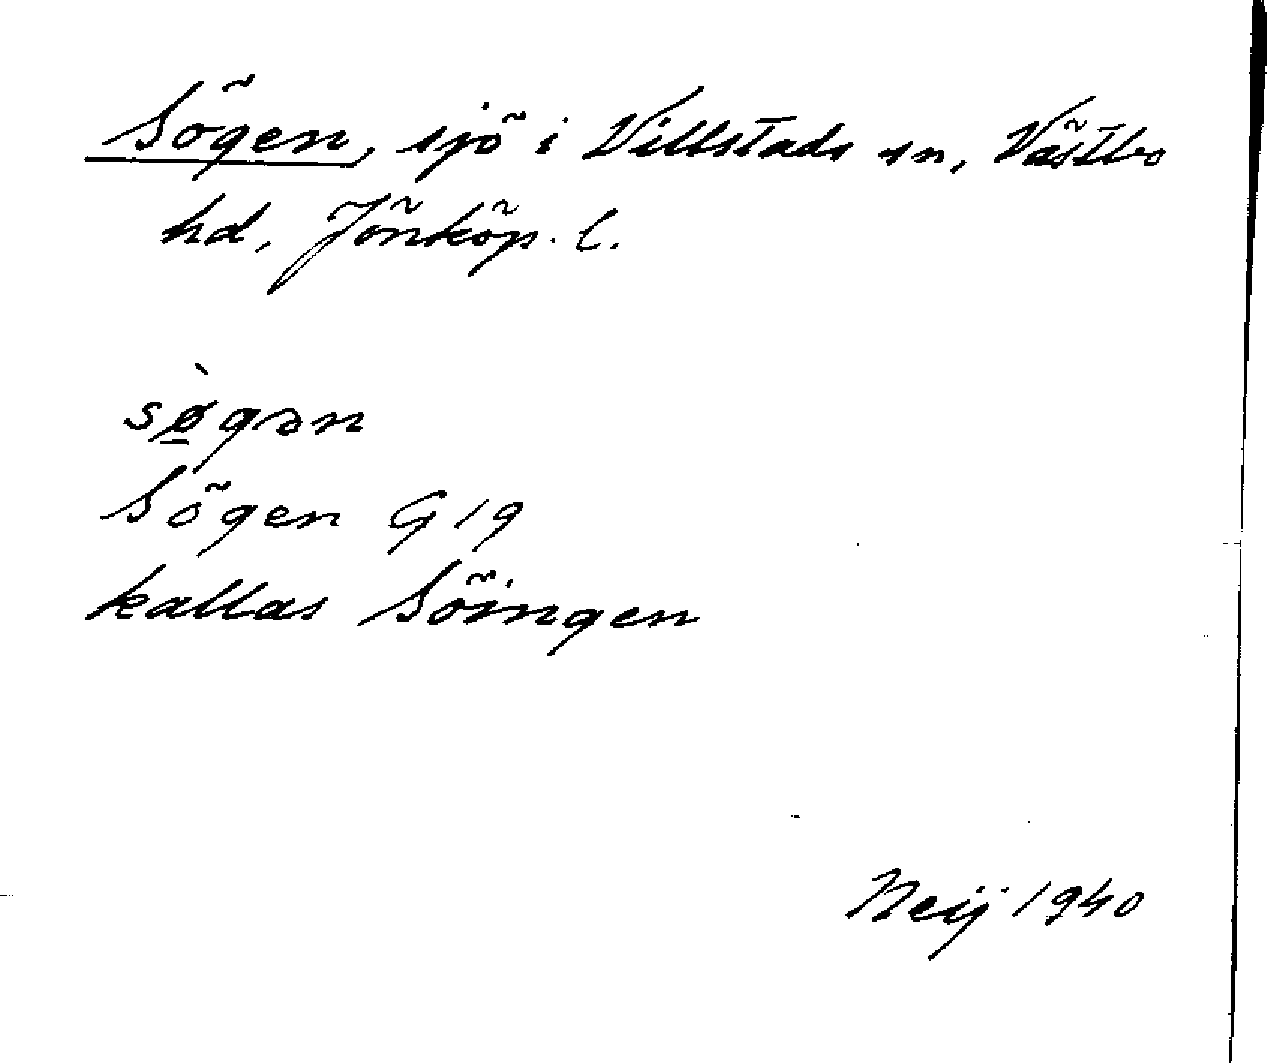 Sögen, sjö i Villstads sn, Västbo
hd, Jönköp. l.
sø̠̀gən
Sögen G 19
kallas Söingen
Neij 1940